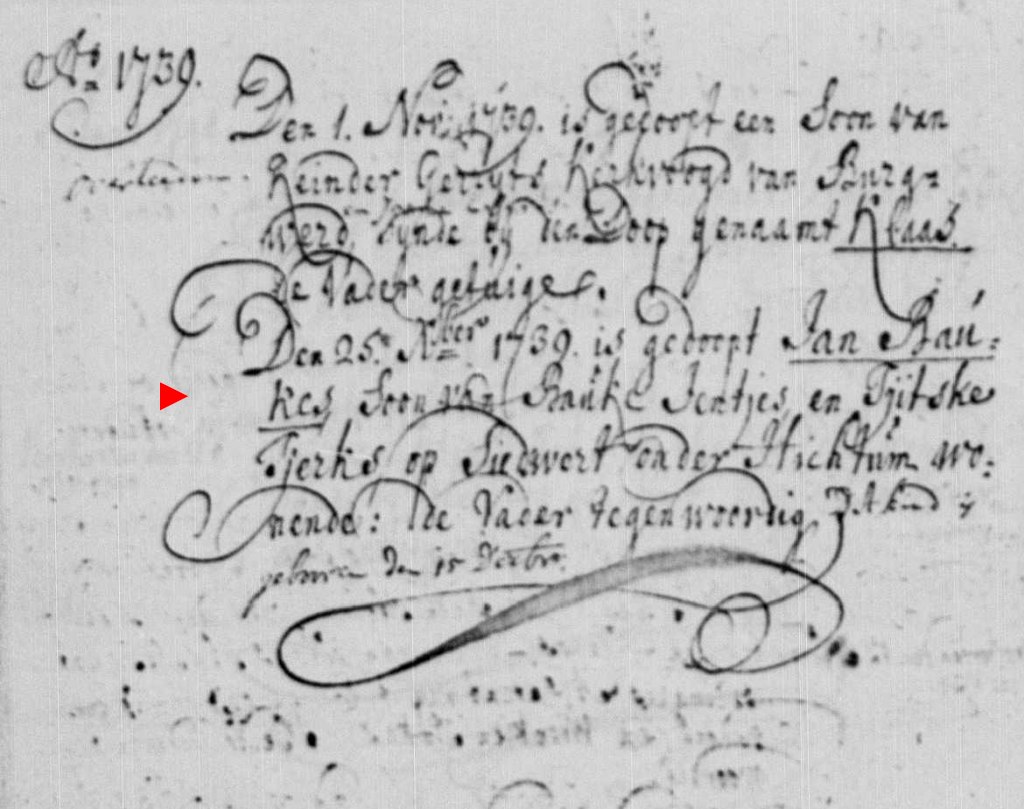 Ao 1739.
Den 1. Nov. 1739. is gedoopt een Soon van
Reinder Gerryts Kerkvoogd van Burg=
werd, Synde by den Doop genaamt Klaas.
De Vader getuige.
Den 25. Nber 1739. is gedoopt Jan Bau=
kes Soon van Bauke Jentjes en Tjitske
Tjerks op Siedwert onder Hichtum wo=
nende: de Vader tegenwoordig 't kind is
geboren den 15